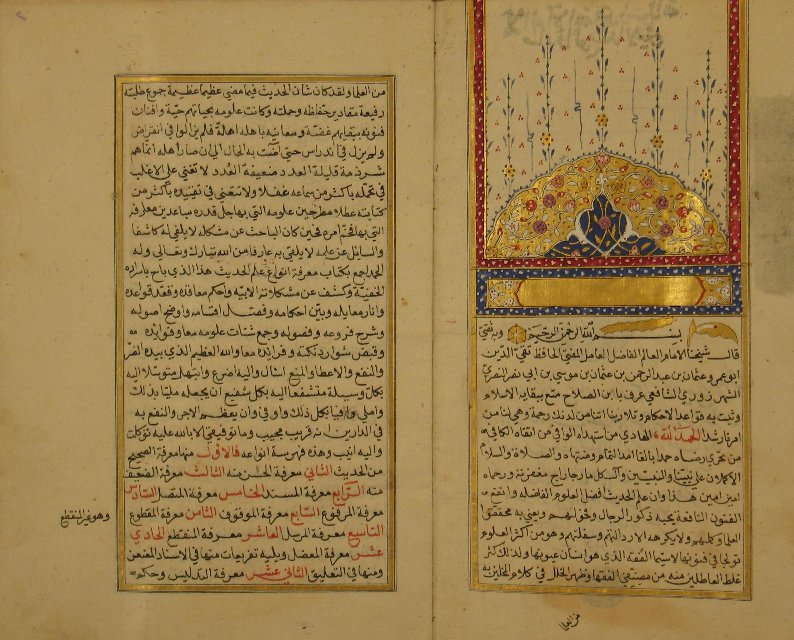 بسم الله الرحمن الرحيم وبه ثقتي
قال شيخنا الامام العالم الفاضل العامل المفتي الحافظ تقي الدين
ابو عمرو عثمان بن عبد الرحمن بن عثمان بن موسى بن ابي نصر النصري
الشهرزوري الشافعي عرف بابن الصلاح متع ببقائه الاسلام
وثبت به قواعد الاحكام وتلا ربنا اتنا من لدنك رحمة وهيئ لنا من
امرنا رشدا الحمد لله الهادي من استهداه الواقي من اتقاه الكافي
من تحرى رضاه حمدا بالغا امد التمام ومنتهاه والصلاة والسلام
الاكملان على نبينا والنبيين وآل كل ما رجا راج مغفرته ورحماه
امين امين هذا وان علم الحديث افضل العلوم الفاضلة وانفع
الفنون النافعة يحبه ذكور الرجال وفحولهم ويعنى به محققوا
العلماء وكملتهم ولا يكرهه الا رذالتهم وسفلتهم وهو من اكثر العلوم
تولجا في فنونها لا سيما الفقه الذي هو انسان عيونها ولذلك كثر
غلط العاطلين منه من مصنفي الفقهاء وظهر الخلل في كلام المخلين به
من العلما
من العلماء ولقد كان شان الحديث فيما مضى عظيما عظيمة جموع طلبته
رفيعة مقادير حفاظه وحملته وكانت علومه بحياتهم حية وافنان
فنونه ببقائهم غضة ومغانيه باهله اهلة فلم يزالوا في انقراض
ولم يزل في اندراس حتى اضت به الحال الى ان صار اهله انما هم
شرذمة قليلة العدد ضعيفة العدد لا تعنى على الاغلب
في تحمله باكثر من سماعه غفلا ولا تتعنى في تقييده باكثر من
كتابته عطلا مطرحين علومه التي بها جل قدره مباعدين معارفه
التي بها فخم امره فحين كان الباحث عن مشكله لا يلقى له كاشفا
والسايل عن علمه لا يلقى به عارفا من الله تبارك وتعالى وله
الحمد اجمع بكتاب معرفة انواع علم الحديث هذا الذي باح باسراره
الخفية وكشف عن مشكلاته الابية واحكم معاقده وقعد قواعده
وانار معالمه وبين احكامه وفصل اقسامه واوضح اصوله
وشرح فروعه وفصوله وجمع شتات علومه وفوائده
وقنص شوارد نكته وفرائده فالله العظيم الذي بيده الضر
والنفع والاعطاء والمنع اسال واليه اضرع وابتهل متوسلا اليه
بكل وسيلة متشفعا اليه بكل شفيع ان يجعله مليا بذلك
واملى وافيا بكل ذلك واوفى وان يعظم الاجر والنفع به
في الدارين انه قريب مجيب وما توفيقي الا بالله عليه توكلت
واليه انيب وهذه فهرسة انواعه فالاول منها معرفة الصحيح
من الحديث الثاني معرفة الحسن منه الثالث معرفة الضعيف
منه الرابع معرفة المسند الخامس معرفة المتصل السادس
معرفة المرفوع السابع معرفة الموقوف الثامن معرفة المقطوع
وهو غير المنقطع
التاسع معرفة المرسل العاشر معرفة المنقطع الحادي
عشر معرفة المعضل ويليه تفريعات منها في الاسناد المعنعن
ومنها في التعليق الثاني عشر معرفة التدليس وحكم